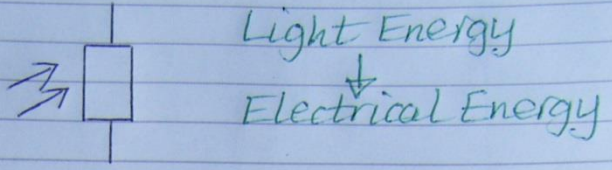 Light Energy
Electrical Energy